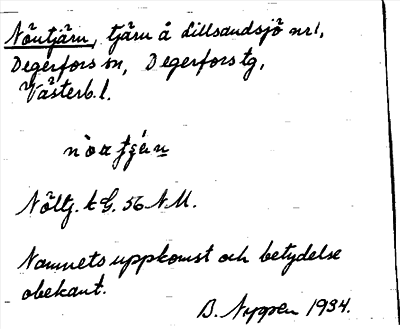 Nöutjärn, tjärn å Lillsandsjö nr 1,
Degerfors sn, Degerfors tg,
Västerb. l.
Nöltj. k G. 56 N M.
Namnets uppkomst och betydelse
obekant.
B. Nyppen 1934.